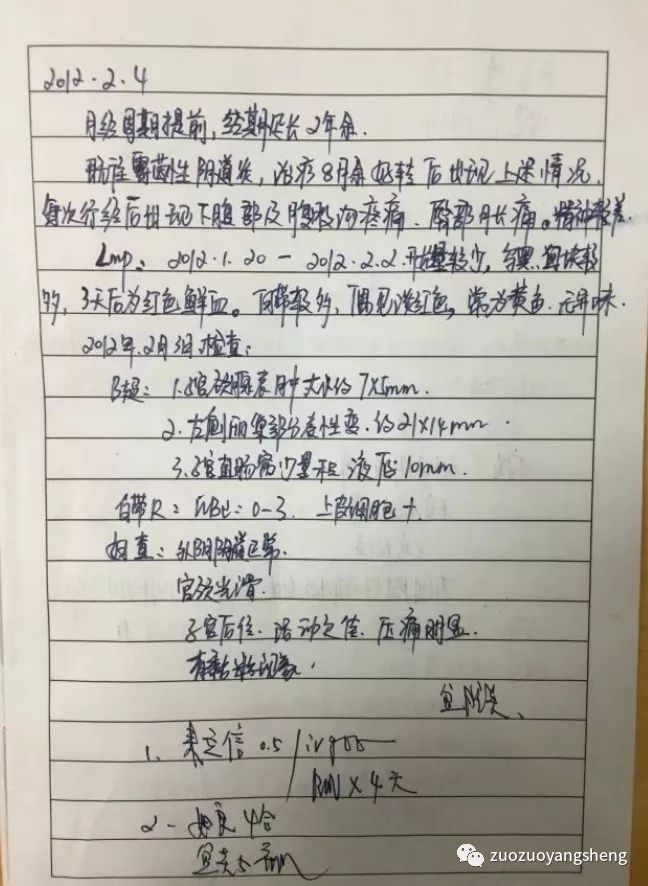 2012.2.4
月经周期提前，经期延长2年余.
既往霉菌性阴道炎，治疗8月余好转后出现上述情况，
每次行经后出现下腹部及腹股沟疼痛、臀部月长痛。精神较差
Lmp：2012.1.20 — 2012.2.2.开始量较少，
多，3天后为红色鲜血。白带较多，偶见淡红色，常为黄色.无异味.
2012年2月3日检查：
B超：1.宫颈腺囊肿大小约7X5mm.
2.左侧卵巢部分囊性变.约21X14mm.
3.子宫直肠窝少量积液后10mm.
白带R：WBC：0-3. 上皮细胞+.
妇查：外阴阴道正常.
宫颈光滑.
子宫后位.活动欠佳.压痛明显.
有举
1. 来立信 0.5 / ivgtt
X4天
2- 4合
zuozuoyangsheng